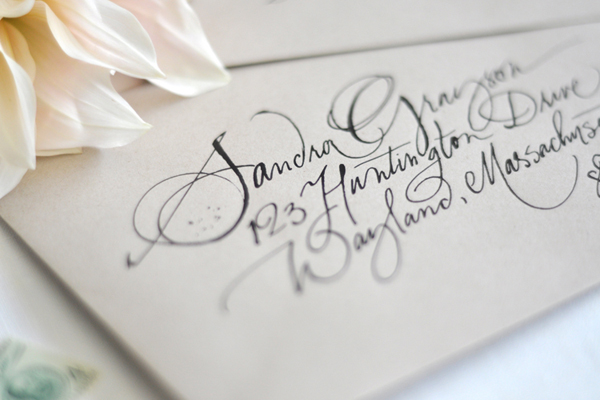 Sandra Grayson
123 Huntington Drive
Wayland, Massachus